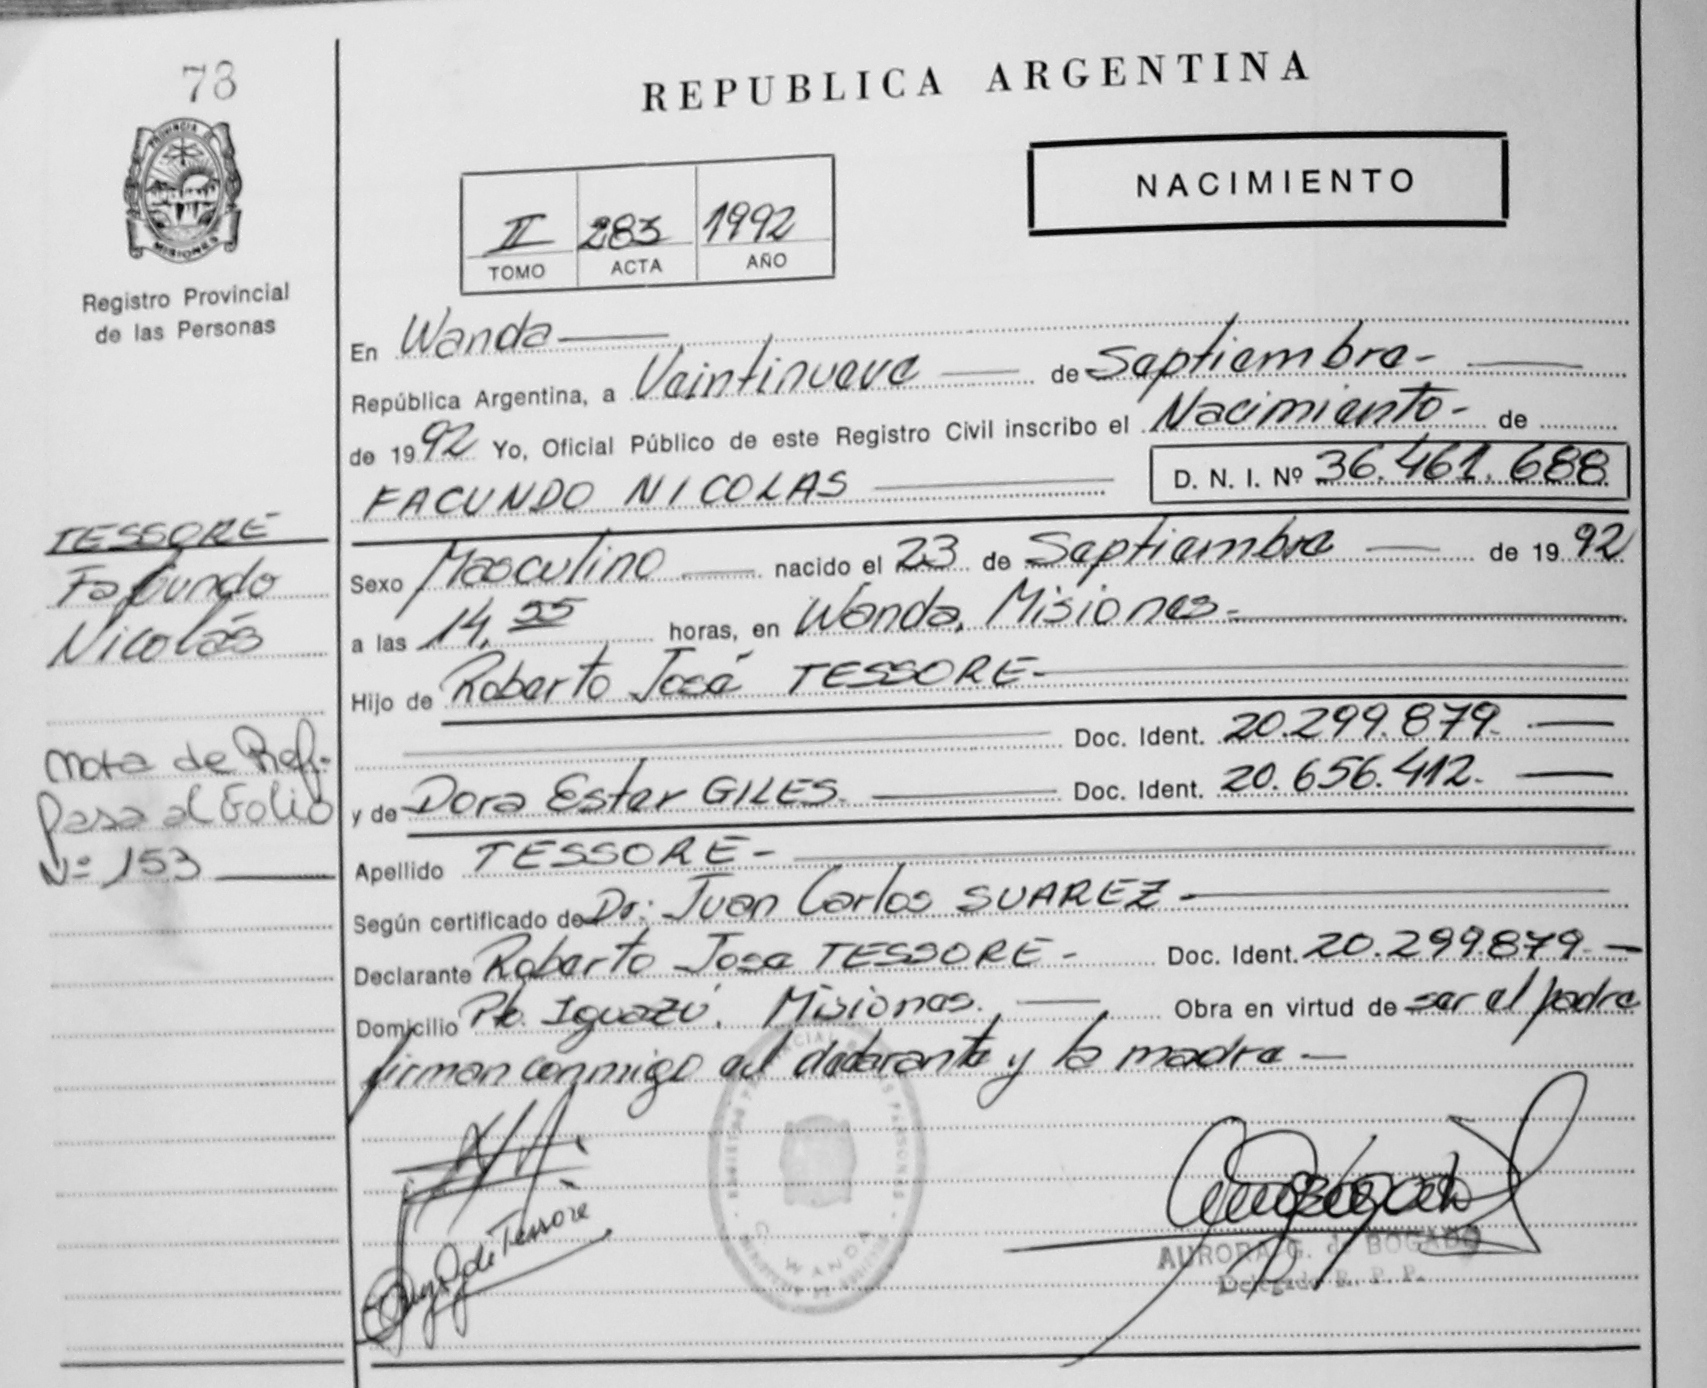 73
PROVINCIA DE
MISIONES
Registro Provincial
de las Personas
REPUBLICA ARGENTINA
NACIMIENTO
II 283 1992
TOMO ACTA AÑO
En Wanda
República Argentina, a Veintinueve de Septiembre-
de 1992 Yo, Oficial Público de este Registro Civil inscribo el Nacimiento- de
FACUNDO NICOLAS D. N. I. Nº 36.461.688
TESSORE
Facundo
Nicolás
Sexo Masculino nacido el 23 de Septiembre de 1992
a las 14,55 horas, en Wanda, Misiones-
Hijo de Roberto José TESSORE-
Doc. Ident. 20.299.879-
y de Dora Ester GILES. Doc. Ident. 20.656.412-
Nota de Ref.
Pasa al Folio
Nº 153
Apellido TESSORE-
Según certificado de Dr: Juan Carlos SUAREZ-
Declarante Roberto Jose TESSORE- Doc. Ident. 20.299.879-
Domicilio Pto. Iguazú, Misiones. Obra en virtud de ser el padre
firman conmigo el declarante y la madre-
de Tessore
WANDA
AURORA G. de BOGADO
Delegada R. P. P.